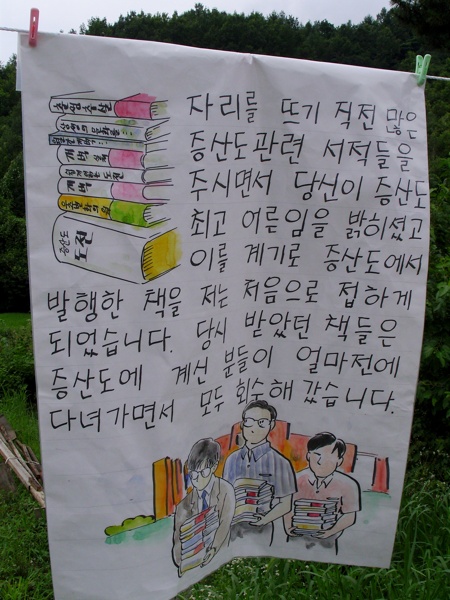 개벽
개벽
증산도
도전
자리를 뜨기 직전 많은
증산도관련 서적들을
주시면서 당신이 증산도
최고 어른임을 밝히셨고
이를 계기로 증산도에서
발행한 책을 저는 처음으로 접하게
되었습니다. 당시 받았던 책들은
증산도에 계신 분들이 얼마전에
다녀가면서 모두 회수해 갔습니다.